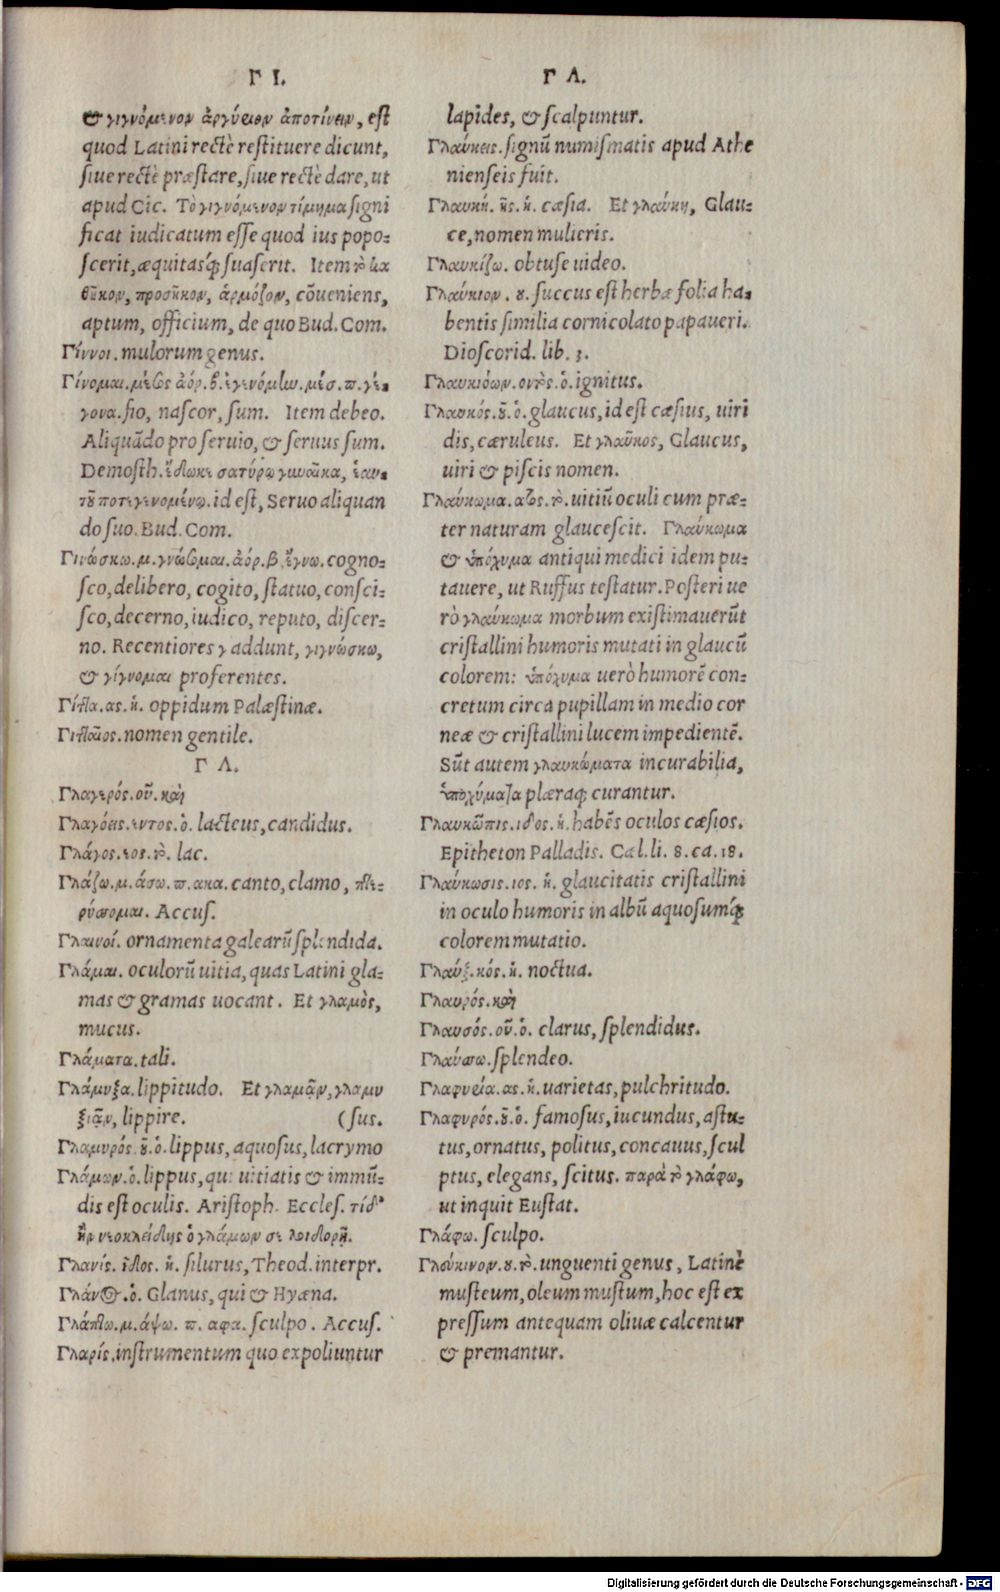 Γ Ι.
& γιγνόμενον ἀργύριον ἀποτίνειν, est
quod Latini rectè restituere dicunt,
siue rectè præstare, siue rectè dare, ut
apud Cic. Τὸ γιγνόμενον τίμημα signi
ficat iudicatum esse quod ius popo-
scerit, æquitasq́; suaserit. Item τὸ κα
θῆκον, προσῆκον, ἁρμόζον, cõueniens,
aptum, officium, de quo Bud. Com.
Γίννοι. mulorum genus.
Γίνομαι. μέσος ἀόρ. β. ἐγενόμην. μέσ. π. γέ-
γονα. fio, nascor, sum. Item debeo.
Aliquãdo pro seruio, & seruus sum.
Demosth. ἔδωκε σατύρῳ γυναῖκα, ἑαυ-
τοῦ ποτε γενομένῳ. id est, Seruo aliquan
do suo. Bud. Com.
Γινώσκω. μ. γνώσομαι. ἀόρ. β. ἔγνω. cogno-
sco, delibero, cogito, statuo, consci-
sco, decerno, iudico, reputo, discer-
no. Recentiores γ addunt, γιγνώσκω,
& γίγνομαι proferentes.
Γίττα. ας. ἡ. oppidum Palæstinæ.
Γιτταῖος. nomen gentile.
Γ Λ.
Γλαγερός. οῦ. καὶ
Γλαγόεις. εντος. ὁ. lacteus, candidus.
Γλάγος. εος. τὸ. lac.
Γλάζω. μ. άσω. π. ακα. canto, clamo, πτε-
ρύσσομαι. Accus.
Γλαινοί. ornamenta galearũ splendida.
Γλάμαι. oculorũ uitia, quas Latini gla-
mas & gramas uocant. Et γλαμὸς,
mucus.
Γλάματα. tali.
Γλάμυξα. lippitudo. Et γλαμᾷν, γλαμυ
ξιᾷν, lippire. (sus.
Γλαμυρός. οῦ. ὁ. lippus, aquosus, lacrymo
Γλάμων. ὁ. lippus, qui uitiatis & immũ-
dis est oculis. Aristoph. Eccles. τίδ'
ἢν νεοκλείδης ὁ γλάμων σε λοιδορῇ.
Γλανίς. ίδος. ἡ. silurus, Theod. interpr.
Γλάνος. ὁ. Glanus, qui & Hyæna.
Γλάπτω. μ. άψω. π. αφα. sculpo. Accus.
Γλαρίς. instrumentum quo expoliuntur
Γ Λ.
lapides, & scalpuntur.
Γλαύκεις. signũ numismatis apud Athe
nienseis fuit.
Γλαυκή. ῆς. ἡ. cæsia. Et γλαύκη, Glau-
ce, nomen mulieris.
Γλαυκίζω. obtuse uideo.
Γλαύκιον. ου. succus est herbæ folia ha-
bentis similia corniculato papaueri.
Dioscorid. lib. 3.
Γλαυκιόων. οντος. ὁ. ignitus.
Γλαυκός. οῦ. ὁ. glaucus, id est cæsius, uiri
dis, cæruleus. Et γλαῦκος, Glaucus,
uiri & piscis nomen.
Γλαύκωμα. ατος. τὸ. uitiũ oculi cum præ-
ter naturam glaucescit. Γλαύκωμα
& ὑπόχυμα antiqui medici idem pu-
tauere, ut Ruffus testatur. Posteri ue
rò γλαύκωμα morbum existimauerũt
cristallini humoris mutati in glaucũ
colorem: ὑπόχυμα uerò humorẽ con-
cretum circa pupillam in medio cor
neæ & cristallini lucem impedientẽ.
Sũt autem γλαυκώματα incurabilia,
ὑποχύματα plæraq; curantur.
Γλαυκῶπις. ιδος. ἡ. habẽs oculos cæsios.
Epitheton Palladis. Cal. li. 8. ca. 18.
Γλαύκωσις. ιος. ἡ. glaucitatis cristallini
in oculo humoris in albũ aquosumq́;
colorem mutatio.
Γλαύξ. κός. ἡ. noctua.
Γλαυρός. καὶ
Γλαυσός. οῦ. ὁ. clarus, splendidus.
Γλαύσσω. splendeo.
Γλαφυρία. ας. ἡ. uarietas, pulchritudo.
Γλαφυρός. οῦ. ὁ. famosus, iucundus, astu-
tus, ornatus, politus, concauus, scul
ptus, elegans, scitus. παρὰ τὸ γλάφω,
ut inquit Eustat.
Γλάφω. sculpo.
Γλεύκινον. ου. τὸ. unguenti genus, Latinè
musteum, oleum mustum, hoc est ex
pressum antequam oliuæ calcentur
& premantur.
Digitalisierung gefördert durch die Deutsche Forschungsgemeinschaft - DFG